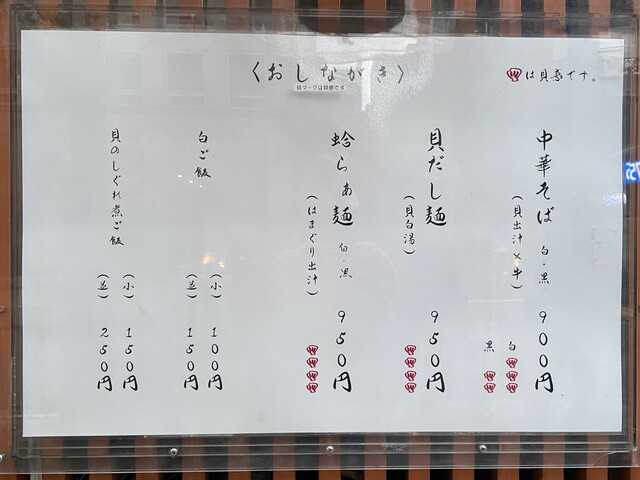 〈おしながき〉
貝マークは貝感です
は貝感です。
中華そば 白・黒
(貝出汁×牛)
900円
白
黒
貝だし麺
(貝白湯)
950円
蛤らぁ麺 白・黒
(はまぐり出汁)
950円
白ご飯
(小) 100円
(並) 150円
貝のしぐれ煮ご飯
(小) 150円
(並) 250円